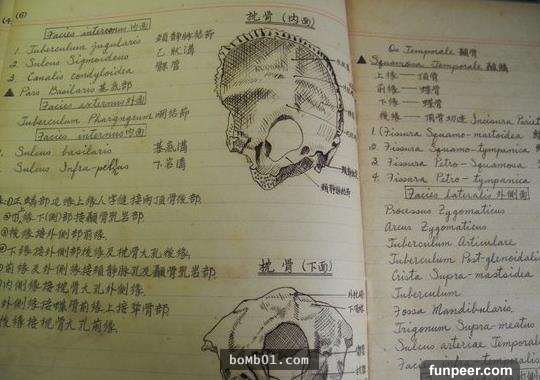 (6)
Facies internum 內面
1. Tuberculum jugularis 頸靜脈結節
2. Sulcus Sigmoideus 乙狀溝
3. Canalis condyloidea 髁管
▲ Pars Basilaris 基底部
Facies externus 外面
Tuberculum Pharyngeum 咽結節
Facies internus 內面
Sulcus basilaris 基底溝
Sulcus Infra-petrosus 下岩溝
後緣接外側部前緣.
下緣接外側部後緣及枕骨大孔後緣.
前緣及外側緣接頸靜脈孔及顳骨乳岩部.
內側緣接枕骨大孔外側緣.
外側緣接蝶骨前緣上接犁骨部
後緣接枕骨大孔前緣.
枕骨 (內面)
枕骨 (下面)
Os Temporale 顳骨
▲ Squamosa Temporale 顳鱗
上緣 — 頂骨
前緣 — 蝶骨
下緣 — 蝶骨
後緣 — 頂骨切迹 Incisura Pariet
1. Fissura Squamo-mastoidea
2. Fissura Squamo-tympanica
3. Fissura Petro-Squamosa
4. Fissura Petro-tympanica
Facies lateralis 外側面
Processus Zygomaticus
Arcus Zygomaticus
Tuberculum Articulare
Tuberculum Post-glenoidalis
Crista Supra-mastoidea
Tuberculum
Fossa Mandibularis
Trigonum Supra-meatus
Sulcus arteriae Temporalis
boMb01.com
funpeer.com